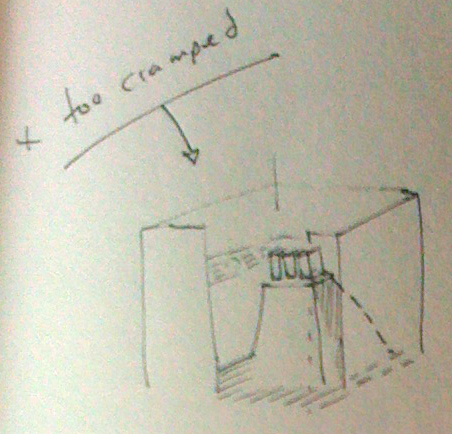 + too cramped